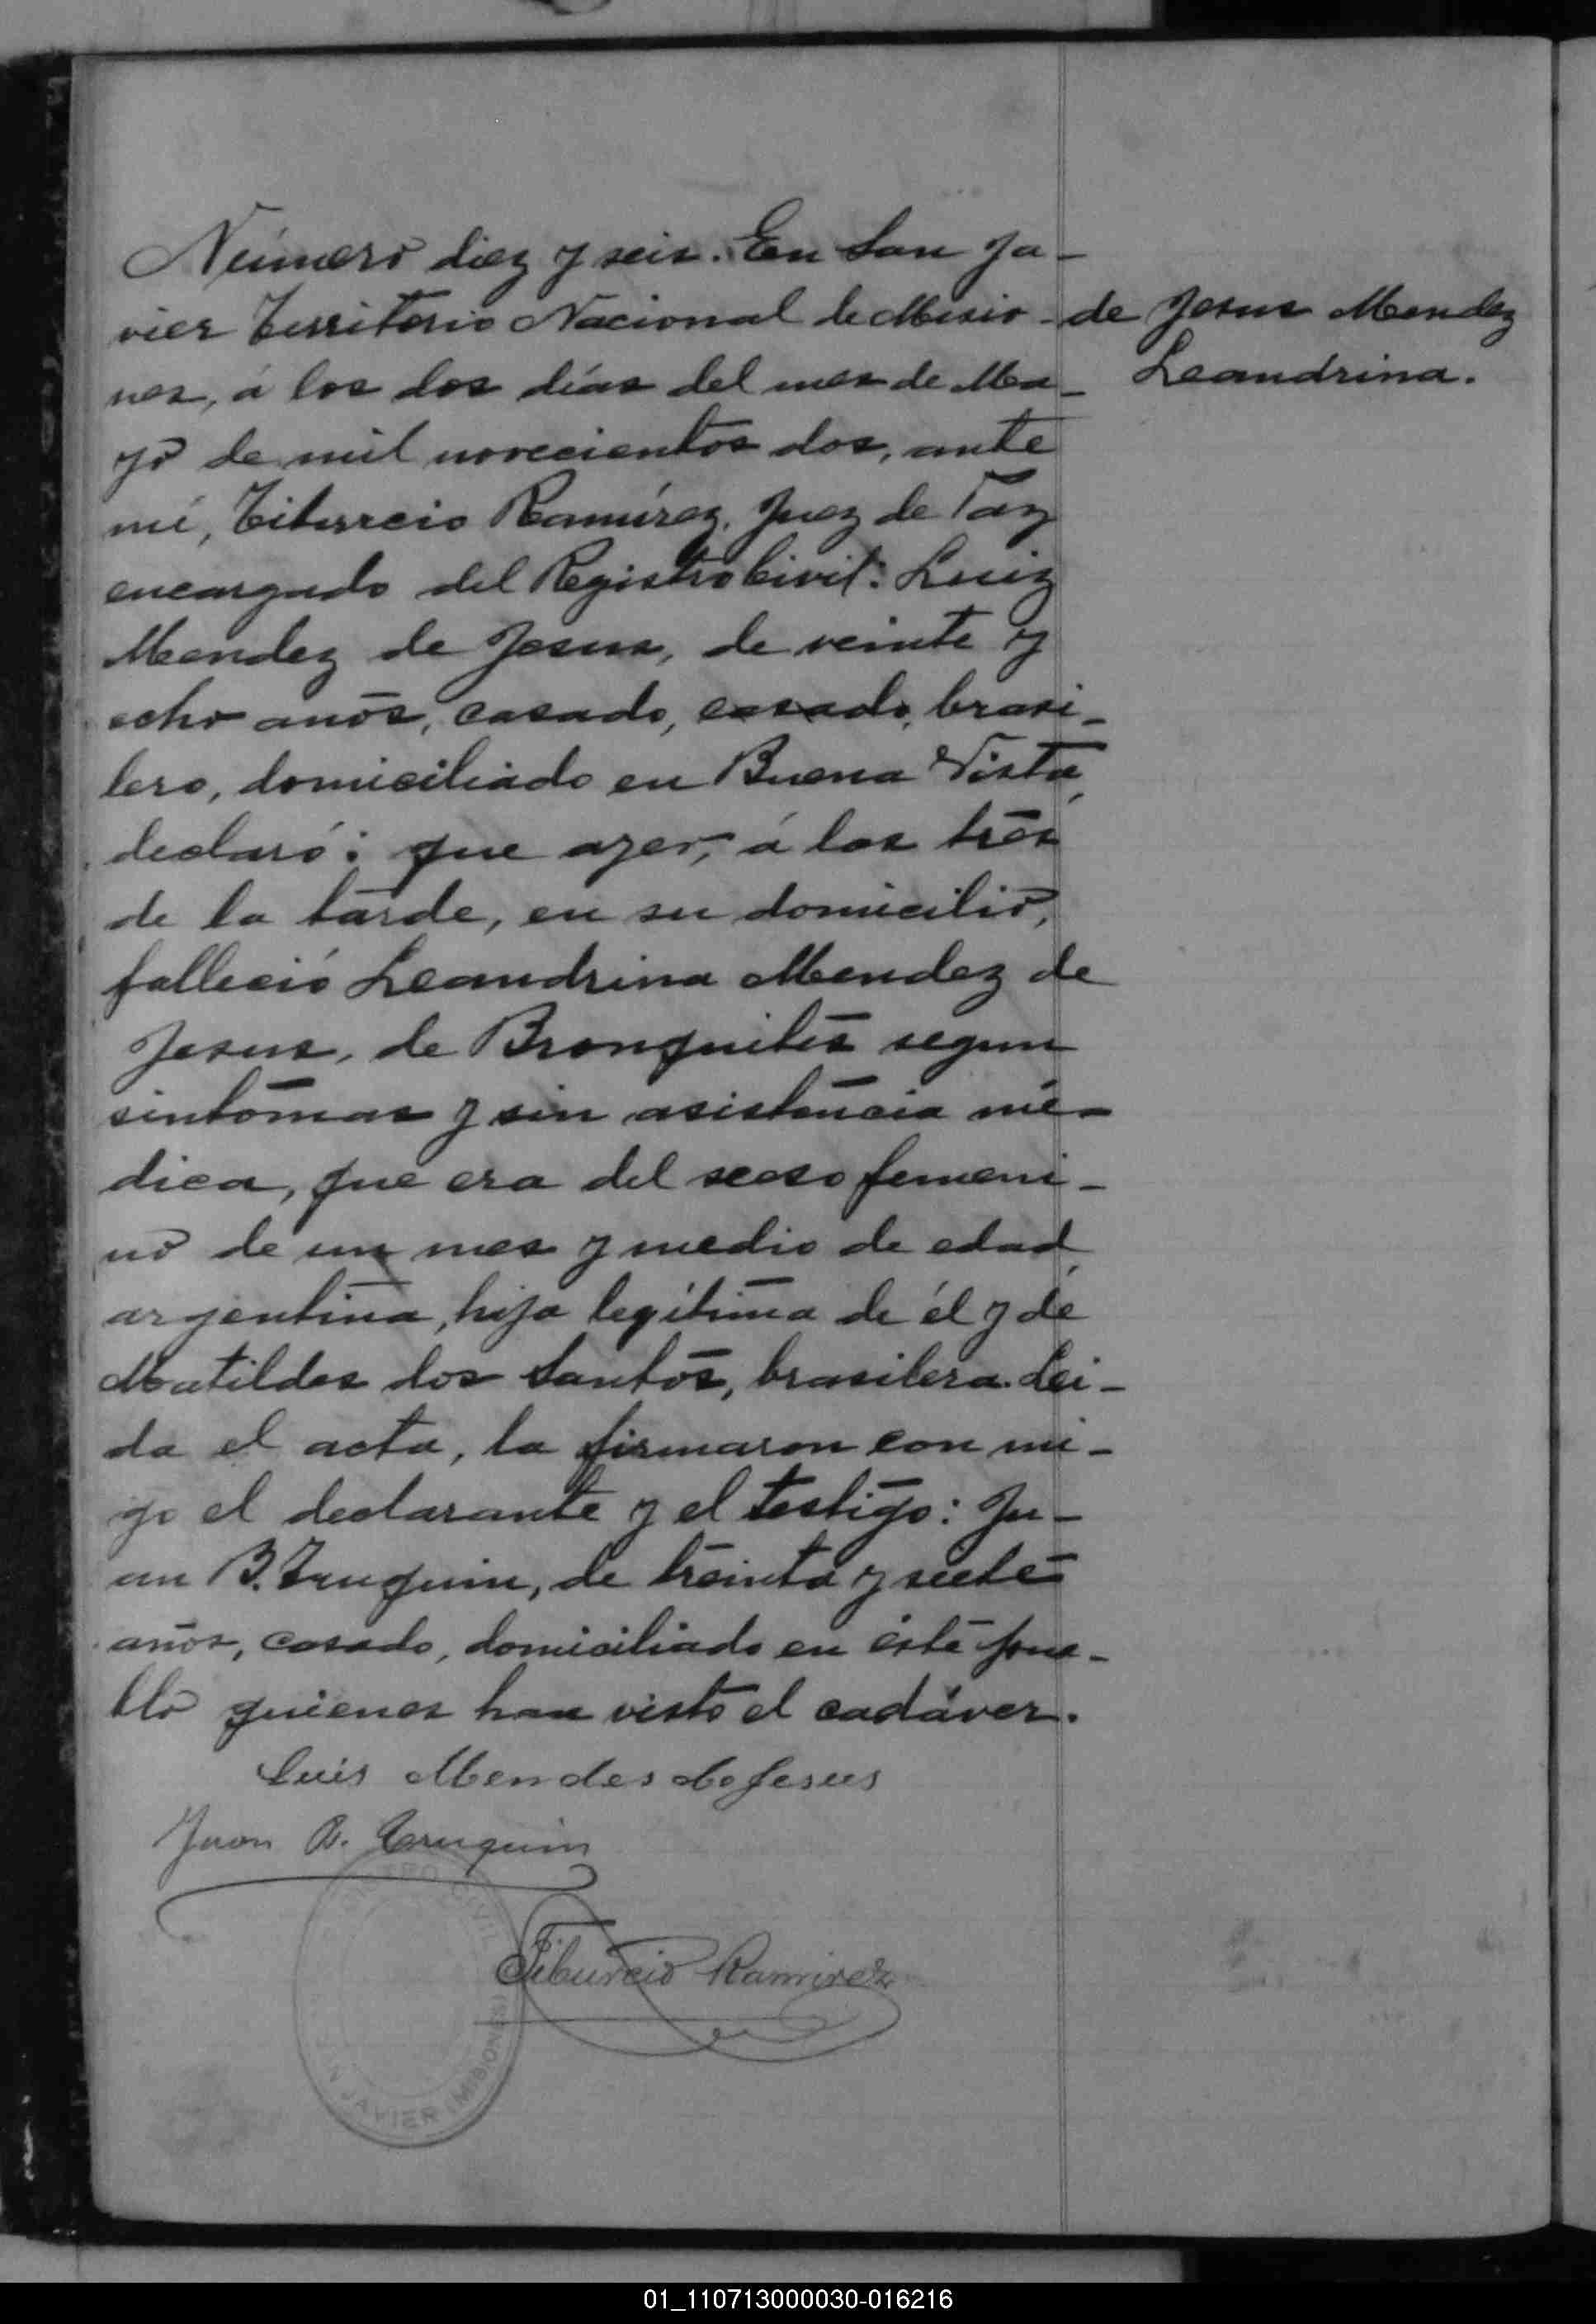 Número diez y seis. En San Ja-
vier Territorio Nacional de Misio-
nes, á los dos días del mes de Ma-
yo de mil novecientos dos, ante
mí, Tiburcio Ramírez, Juez de Paz
encargado del Registro Civil: Luiz
Mendez de Jesus, de veinte y
ocho años, casado, casado, brasi-
lero, domiciliado en Buena Vista,
declaró: que ayer, á las tres
de la tarde, en su domicilio,
falleció Leandrina Mendez de
Jesus, de Bronquitis segun
sintomas y sin asistencia mé-
dica, que era del secso femeni-
no de un mes y medio de edad,
argentina, hija legítima de él y de
Matildes dos Santos, brasilera. Lei-
da el acta, la firmaron con mi-
go el declarante y el testigo: Ju-
an B. Truquin, de treinta y siete
años, casado, domiciliado en éste pue-
blo quienes han visto el cadáver.
de Jesus Mendez
Leandrina.
Luis Mendes de Jesus
Juan B. Truquin
Tiburcio Ramirez
CIVIL
JAVIER (MISIONES)
01_110713000030-016216